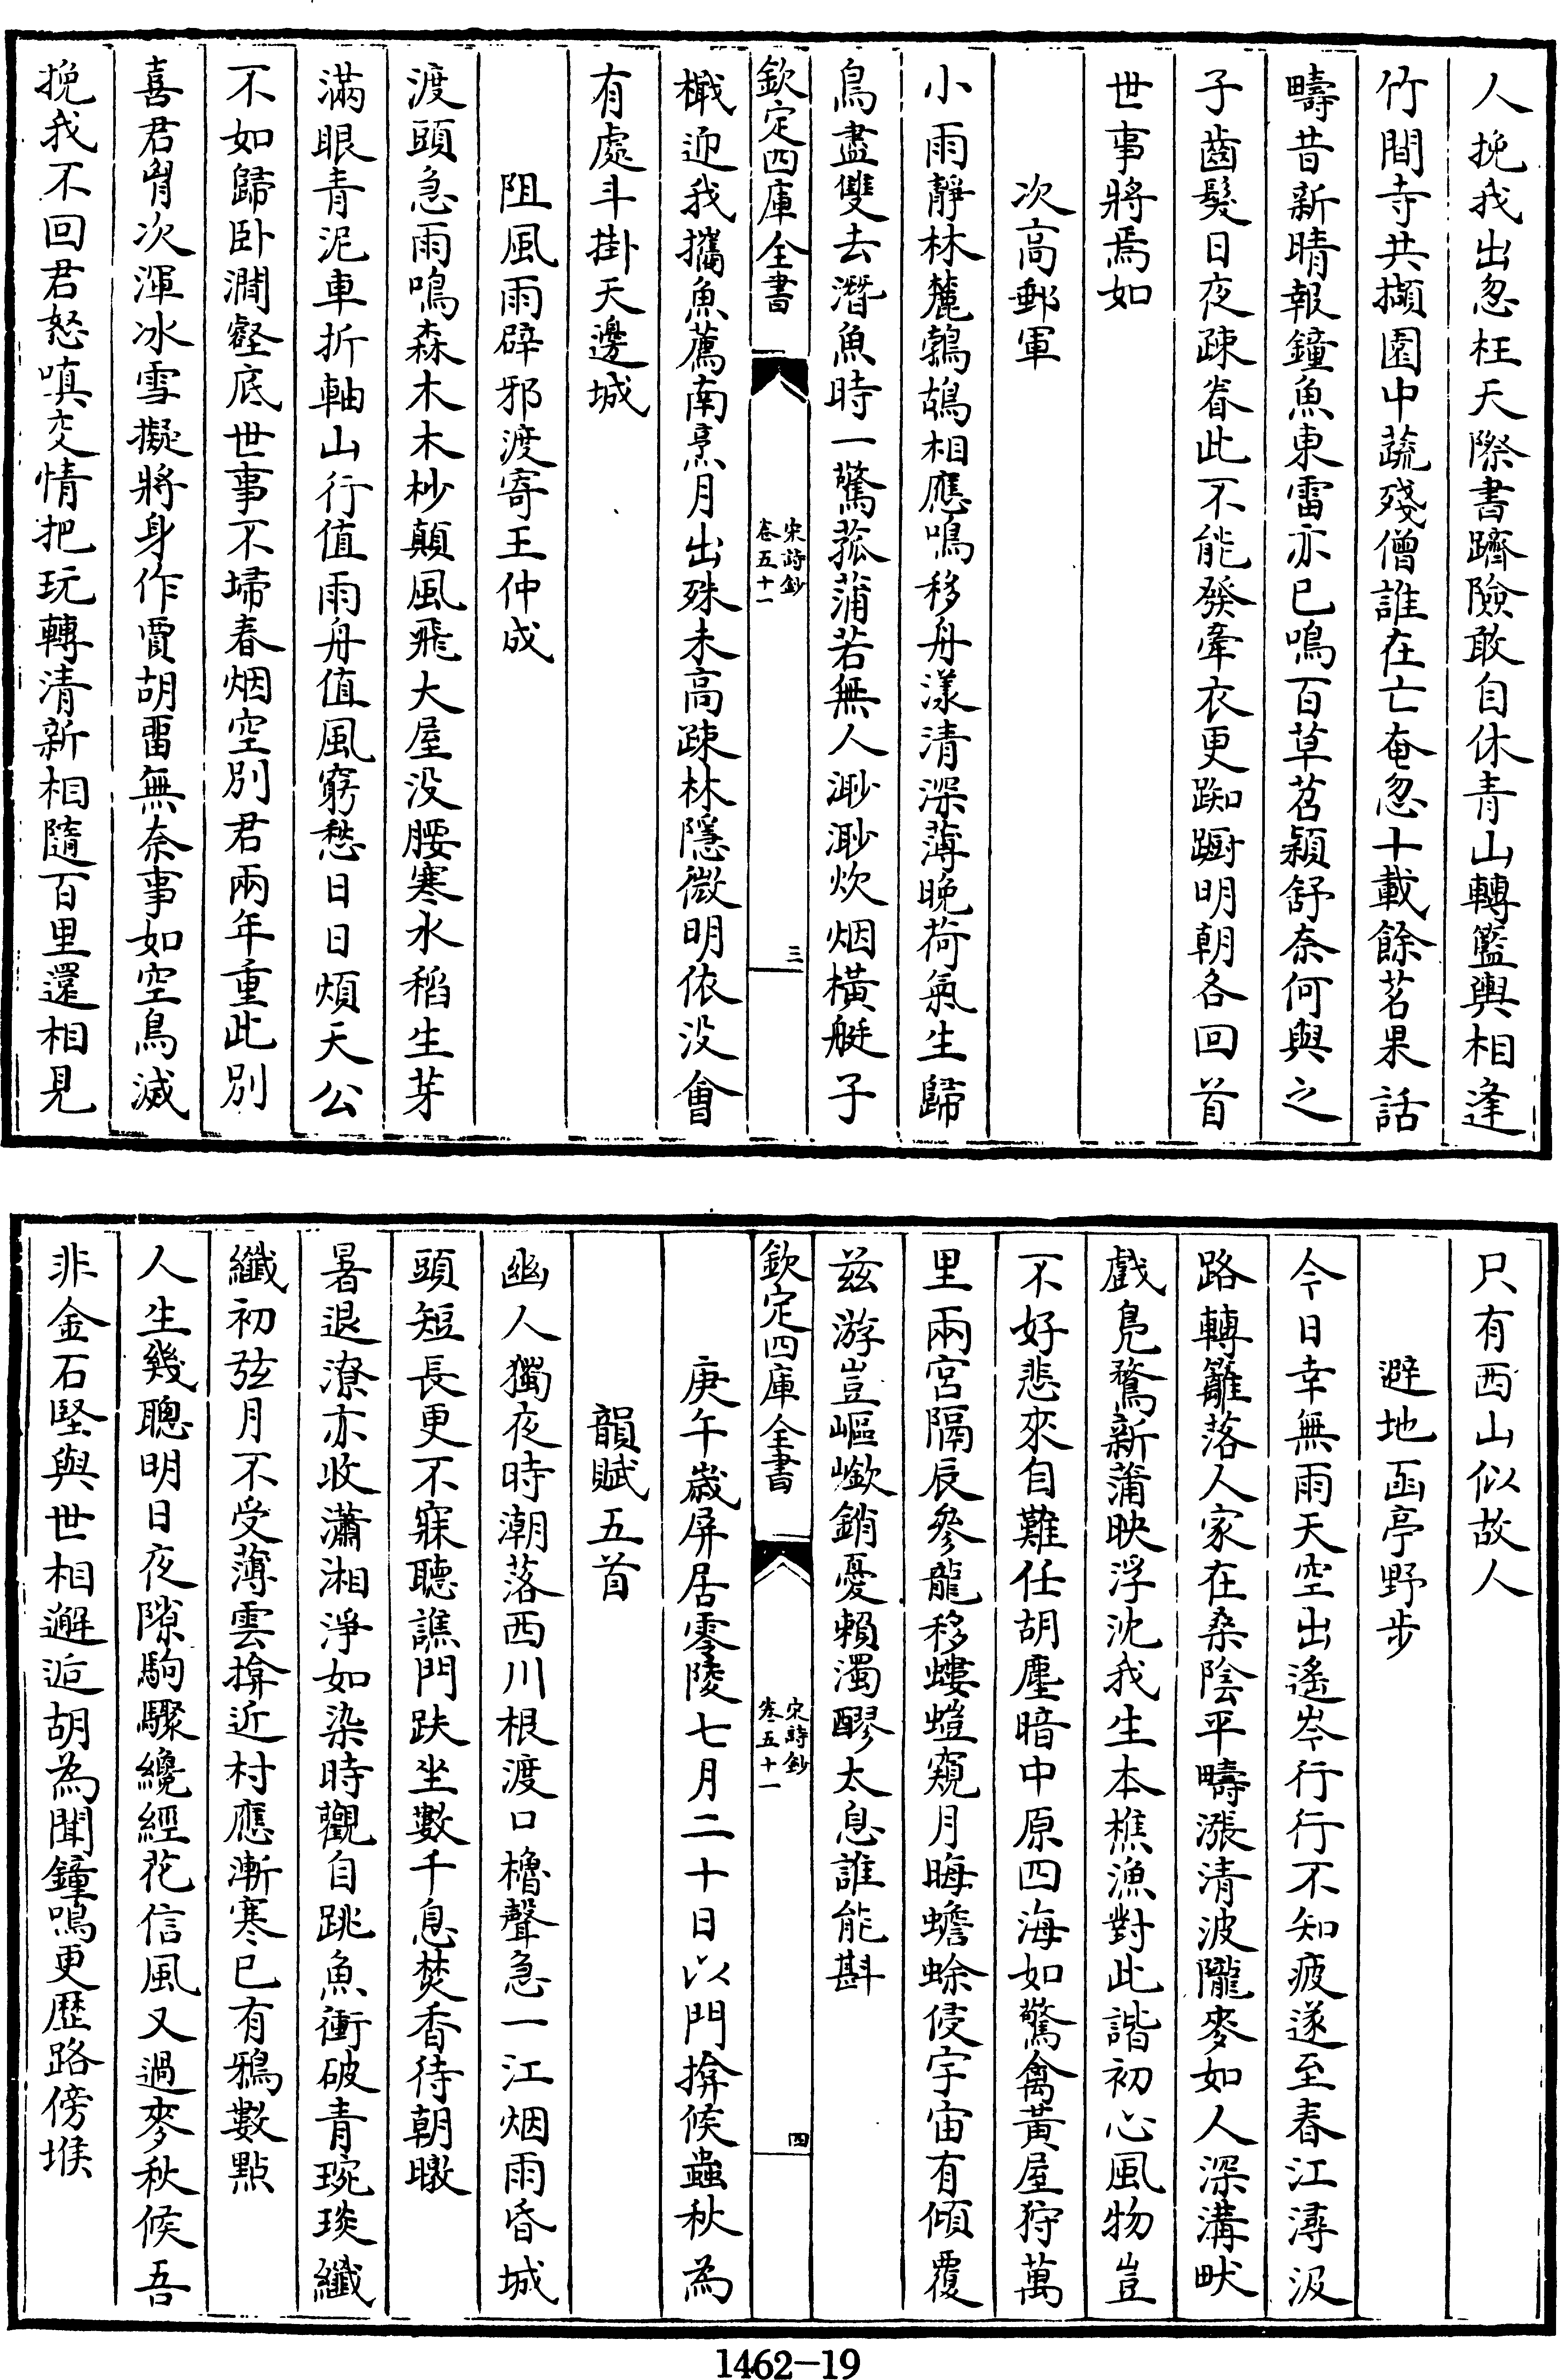 人挽我出忽枉天際書躋險敢自休青山轉籃輿相逢
竹間寺共擷園中蔬殘僧誰在亡奄忽十載餘茗果話
疇昔新晴報鐘魚東雷亦已鳴百草苕穎舒奈何與之
子齒髮日夜疎眷此不能發牽衣更踟蹰明朝各回首
世事將焉如
次高郵軍
小雨靜林麓鶉鴣相應鳴移舟漾清深薄晚荷氣生歸
鳥盡雙去潛魚時一驚菰蒲若無人渺渺炊烟橫艇子
欽定四庫全書
宋詩鈔
卷五十一
三
檝迎我攜魚薦南烹月出殊未高疎林隱微明依没會
有處斗掛天邊城
阻風雨辟邪渡寄王仲成
渡頭急雨鳴森木木杪顛風飛大屋没腰寒水稻生芽
滿眼青泥車折軸山行值雨舟值風窮愁日日煩天公
不如歸卧澗壑底世事不埽春烟空別君兩年重此別
喜君胷次渾冰雪擬將身作賈胡留無奈事如空鳥滅
挽我不回君怒嗔交情把玩轉清新相隨百里還相見
只有西山似故人
避地函亭野步
今日幸無雨天空出遙岑行行不知疲遂至春江潯汲
路轉籬落人家在桑陰平疇漲清波隴麥如人深溝畎
戲鳧鶩新蒲映浮沈我生本樵漁對此諧初心風物豈
不好悲來自難任胡塵暗中原四海如驚禽黃屋狩萬
里兩宮隔辰參龍移螻螘窺月晦蟾蜍侵宇宙有傾覆
兹游豈嶇嶔銷憂賴濁醪太息誰能斟
欽定四庫全書
宋詩鈔
卷五十一
四
庚午歲屏居零陵七月二十日以門揜候蟲秋為
韻賦五首
幽人獨夜時潮落西川根渡口櫓聲急一江烟雨昏城
頭短長更不寐聽譙門趺坐數千息焚香待朝暾
暑退潦亦收瀟湘淨如染時觀自跳魚衝破青琬琰纖
纖初弦月不受薄雲揜近村應漸寒已有鴉數點
人生幾聰明日夜隙駒驟纔經花信風又過麥秋候吾
非金石堅與世相邂逅胡為聞鐘鳴更歴路傍堠
1462-19